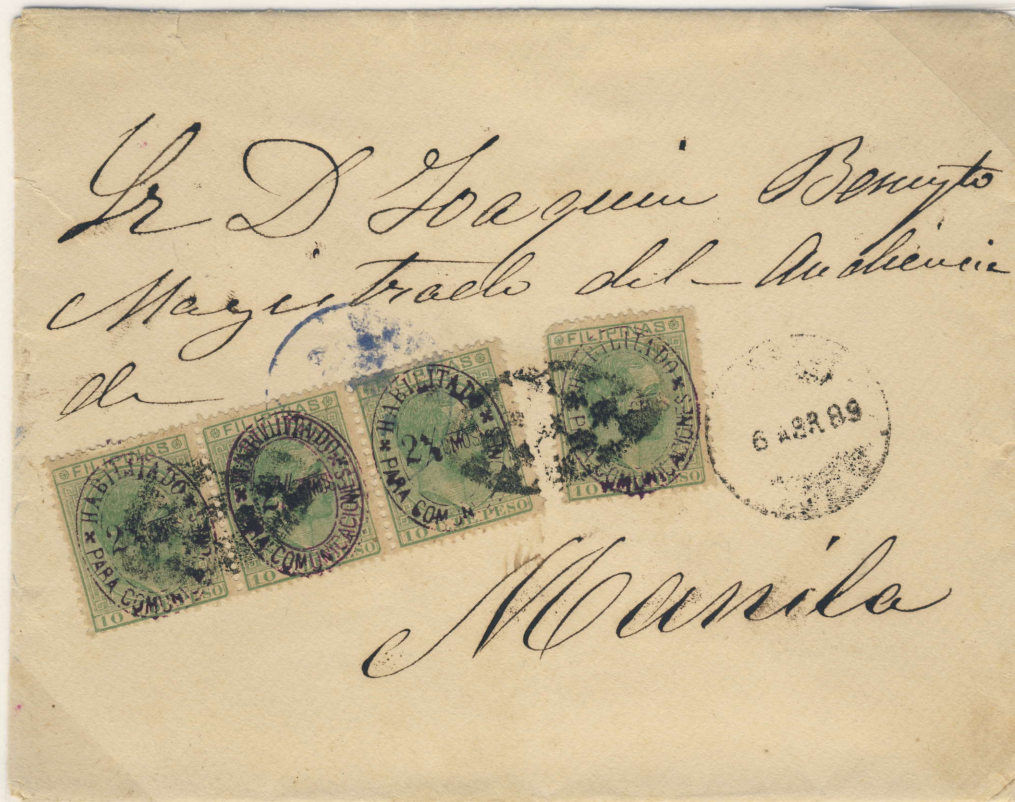 Sr D Joaquin Bennyto
Magistrado del Audiencia
de
FILIPINAS
HABILITADO
2
PARA COMUNI
10
PESO
FILIPINAS
HABILITADO
PARA COMUNICACIONES
10
PESO
FILIPINAS
HABILITADO
2
CMOS
PARA COMUN
10
PESO
FILIPINAS
HABILITADO
COMUNICACIONES
10
PESO
6 ABR 89
Manila